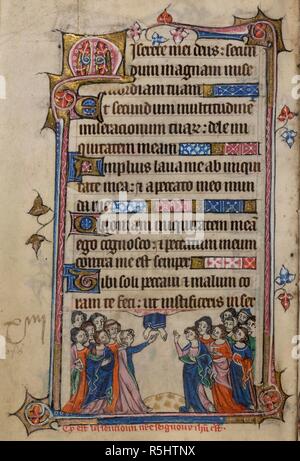 Miserere mei deus: secun
dum magnam mise
ricordiam tuam
Et secundum multitudinē
miseracionum tuarȝ: dele ini
quitatem meam
Amplius laua me ab iniqui
tate mea: & a peccato meo mun
da me
Qm̄ iniquitatem meā
ego cognosco: & peccatum meum
contra me est semper
Tibi soli peccaui: & malum co
ram te feci: ut iustificeris in ser
alamy
Image ID: R5HTNX
www.alamy.com